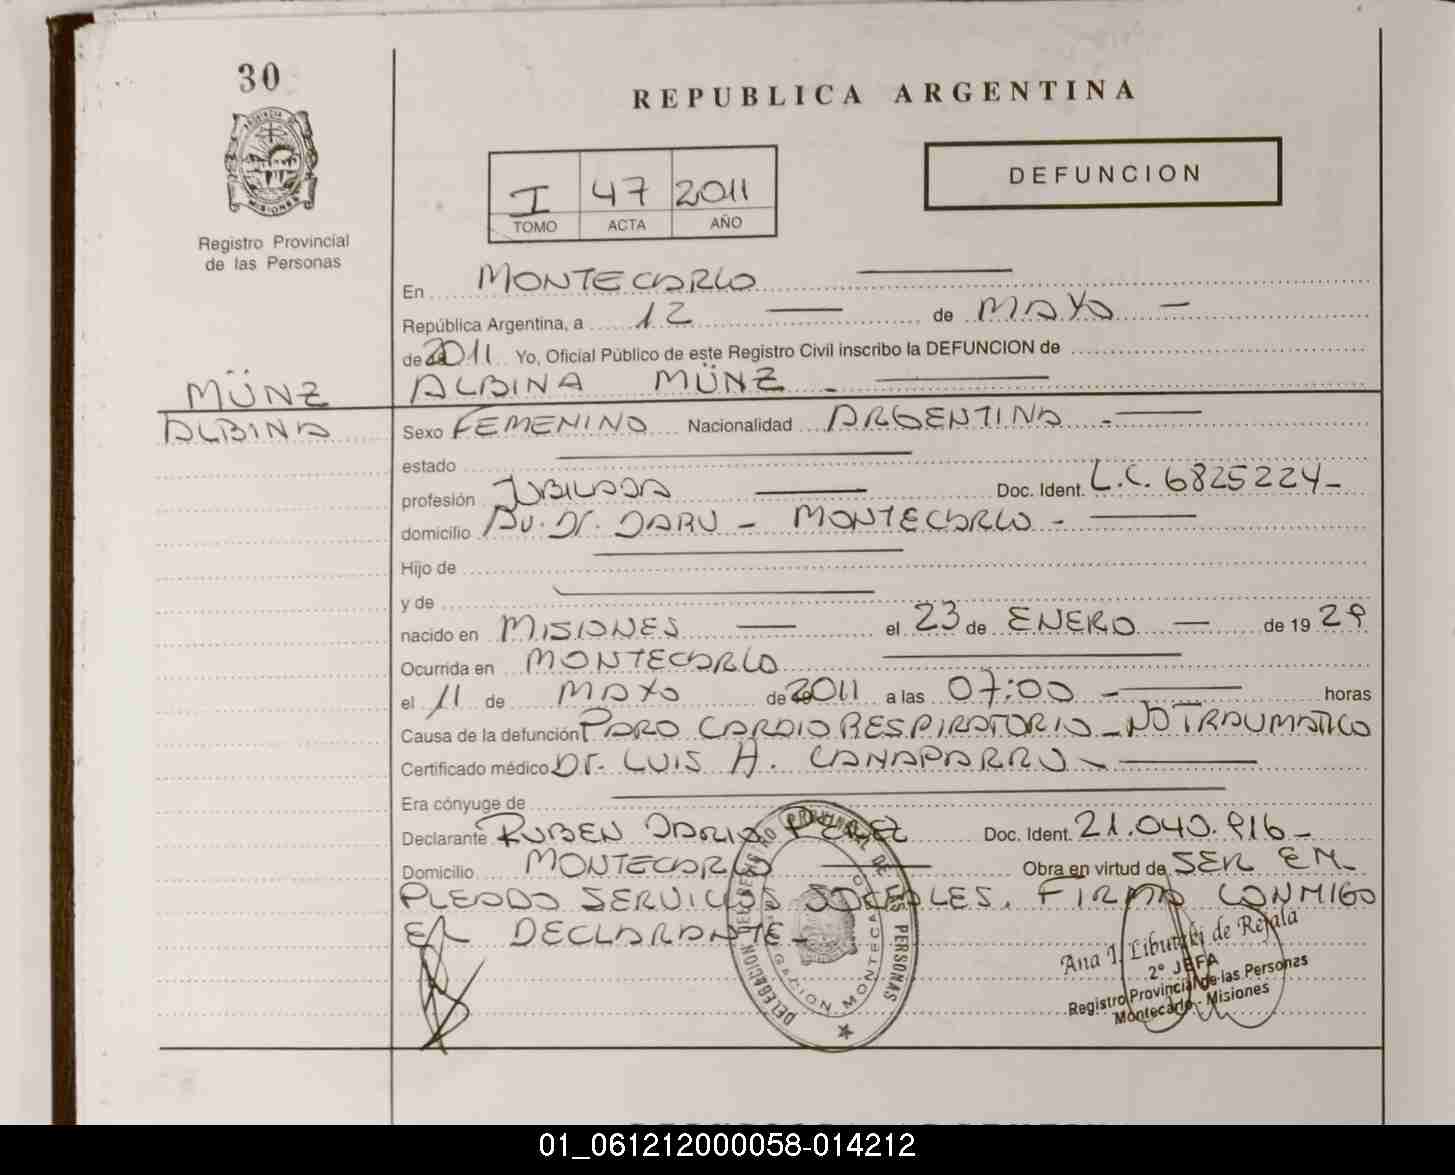 30
REPUBLICA ARGENTINA
PROVINCIA DE
MISIONES
Registro Provincial
de las Personas
DEFUNCION
I 47 2011
TOMO ACTA AÑO
En MONTECARLO
República Argentina, a 12 de MAYO
de 2011 Yo, Oficial Público de este Registro Civil inscribo la DEFUNCION de
MÜNZ ALBINA MÜNZ
ALBINA
Sexo FEMENINO Nacionalidad ARGENTINA
estado
profesión JUBILADA Doc. Ident. L.C. 6825224
domicilio AV. Dr. DARU - MONTECARLO
Hijo de
y de
nacido en MISIONES el 23 de ENERO de 19 29
Ocurrida en MONTECARLO
el 11 de MAYO de 2011 a las 07:00 horas
Causa de la defunción PARO CARDIO RESPIRATORIO - NO TRAUMATICO
Certificado médico Dr. LUIS A. CANAPARRO
Era cónyuge de
Declarante RUBEN DARIO PEREZ Doc. Ident. 21.040.916
Domicilio MONTECARLO Obra en virtud de SER EM
PLEADO SERVICIOS SOCIALES. FIRMA CONMIGO
EL DECLARANTE
DELEGACION DEL REGISTRO PROVINCIAL DE LAS PERSONAS
DELEGACION MONTECARLO
Ana I. de Rejala
2º JEFA
Registro Provincial de las Personas
Montecarlo - Misiones
01_061212000058-014212